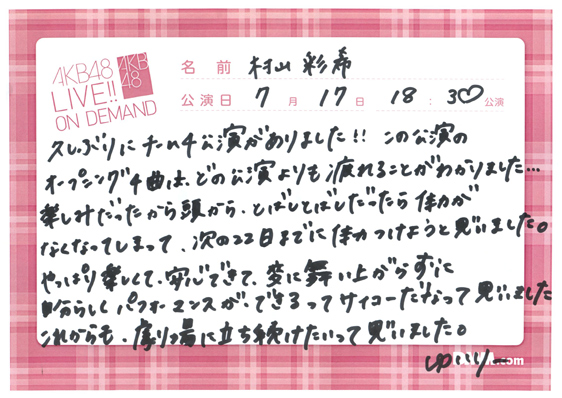 AKB48
LIVE!!
ON DEMAND
AKB
48
名 前 村山 彩希
公演日 7 月 17 日 18 : 30 公演
久しぶりにチーム4公演がありました!! この公演の
オープニング4曲は、どの公演よりも疲れることがわかりました…
楽しみだったから頭から、とばしとばしだったら体力が
なくなってしまって、次の22日までに体力つけようと思いました。
やっぱり楽しくて、安心できて、変に舞い上がらずに
自分らしくパフォーマンスが、できるってサイコーだなって思いました
これからも、劇場に立ち続けたいって思いました。
ゆいりー
.com